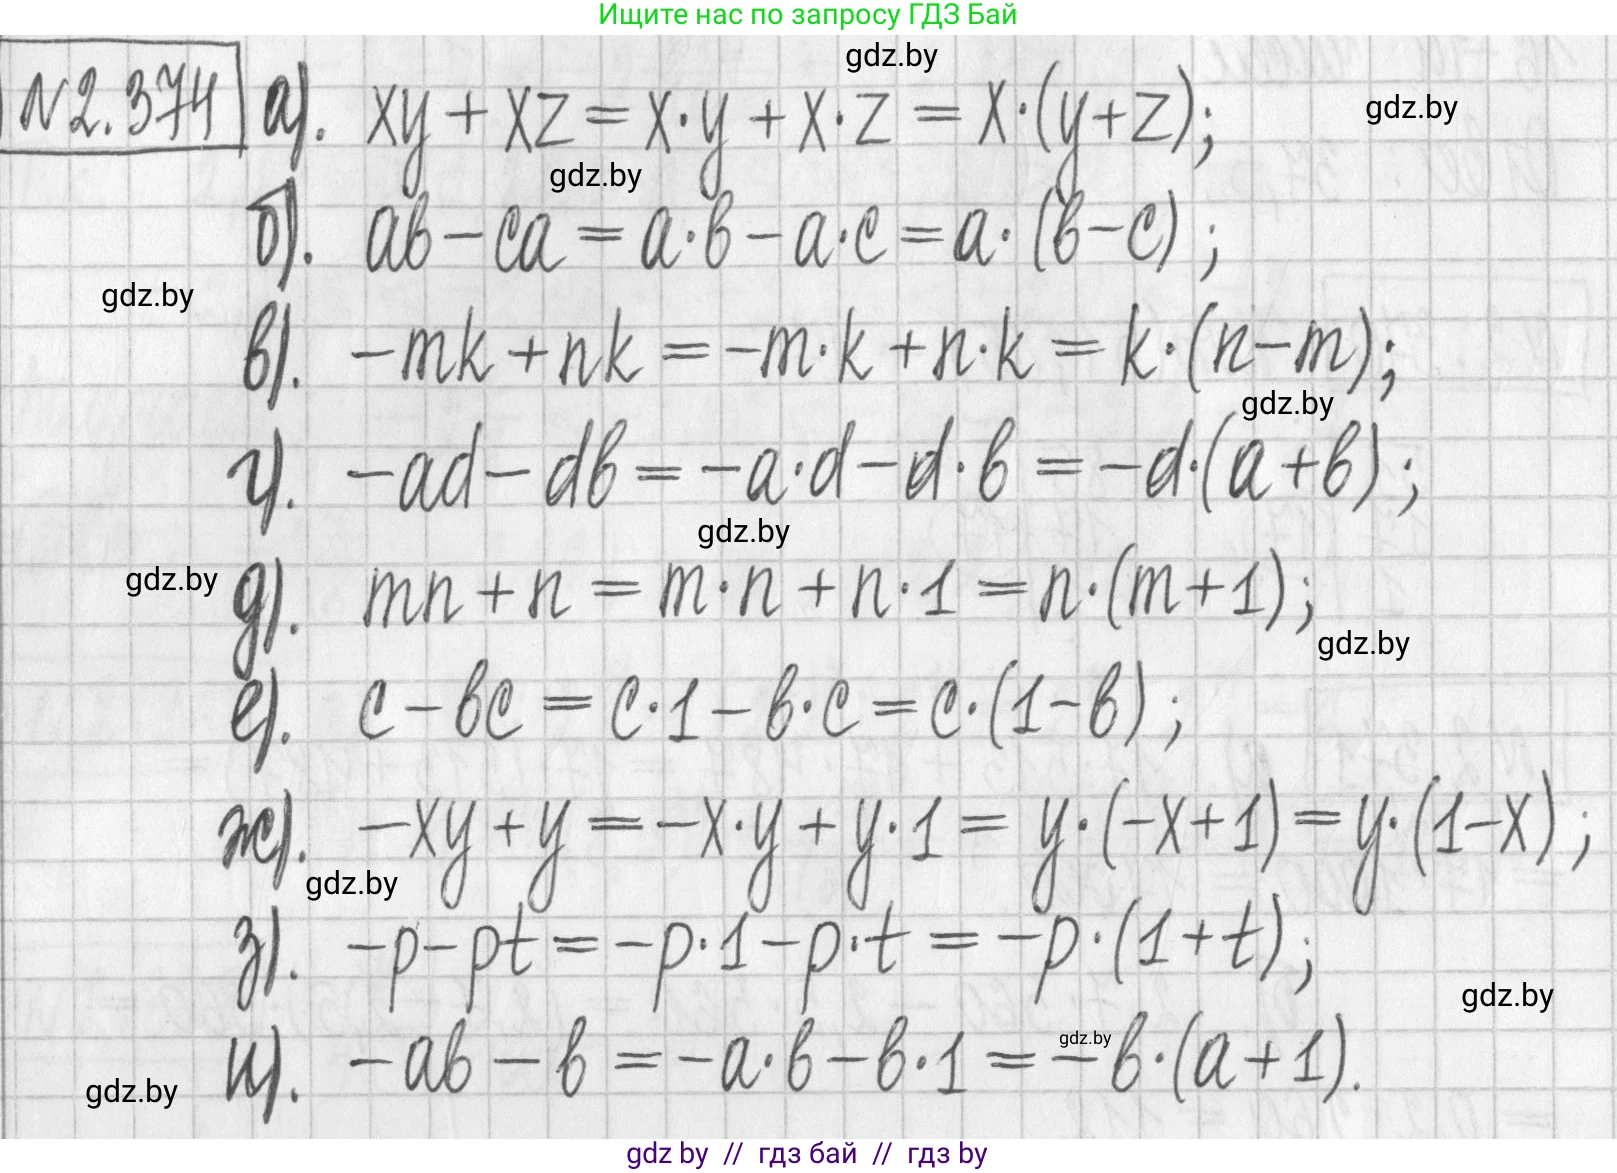 Ищите нас по запросу ГДЗ Бай
gdz.by
№2.374 а). xy + xz = x·y + x·z = x·(y+z);
gdz.by
gdz.by
б). ab − ca = a·b − a·c = a·(b−c);
gdz.by
в). −mk + nk = −m·k + n·k = k·(n−m);
gdz.by
г). −ad − db = −a·d − d·b = −d·(a+b);
gdz.by
gdz.by
д). mn + n = m·n + n·1 = n·(m+1);
gdz.by
е). c − bc = c·1 − b·c = c·(1−b);
ж). −xy + y = −x·y + y·1 = y·(−x+1) = y·(1−x);
gdz.by
з). −p − pt = −p·1 − p·t = −p·(1+t);
gdz.by
gdz.by
и). −ab − b = −a·b − b·1 = −b·(a+1).
gdz.by
gdz by // гдз бай // гдз by